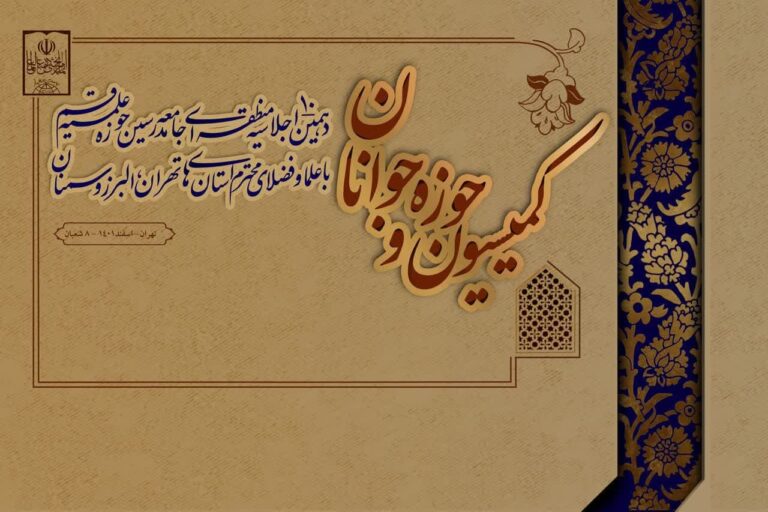 کمیسیون حوزه و جوانان
دهمین ۱۰ اجلاسیه منطقه‌ای جامعه مدرسین حوزه علمیه قم
با علما و فضلای محترم استان‌های تهران، البرز و سمنان
تهران - اسفند ۱۴۰۱ - ۸ شعبان